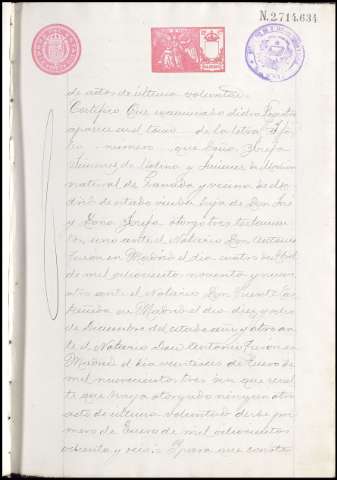 N. 2.714.634
de actos de última voluntad.
Certifico: Que examinado dicho Registro
aparece en el tomo de la letra
folio número que Doña Josefa
Jimenez de Molina y Jimenez de Molina
natural de Granada y vecina de Ma
drid de estado viuda hija de Don José
y Doña Josefa otorgó tres testamen
tos, uno ante el Notario Don Antonio
Turon en Madrid el dia cuatro de Abril
de mil ochocientos noventa y nueve
otro ante el Notario Don Vicente
en Madrid el dia diez y ocho
de Diciembre del citado año y otro an
te el Notario Don Antonio Turon en
Madrid el dia veintiseis de Enero de
mil novecientos tres sin que resul
te que haya otorgado ningun otro
acto de última voluntad desde pri
mero de Enero de mil ochocientos
ochenta y seis. Y para que conste